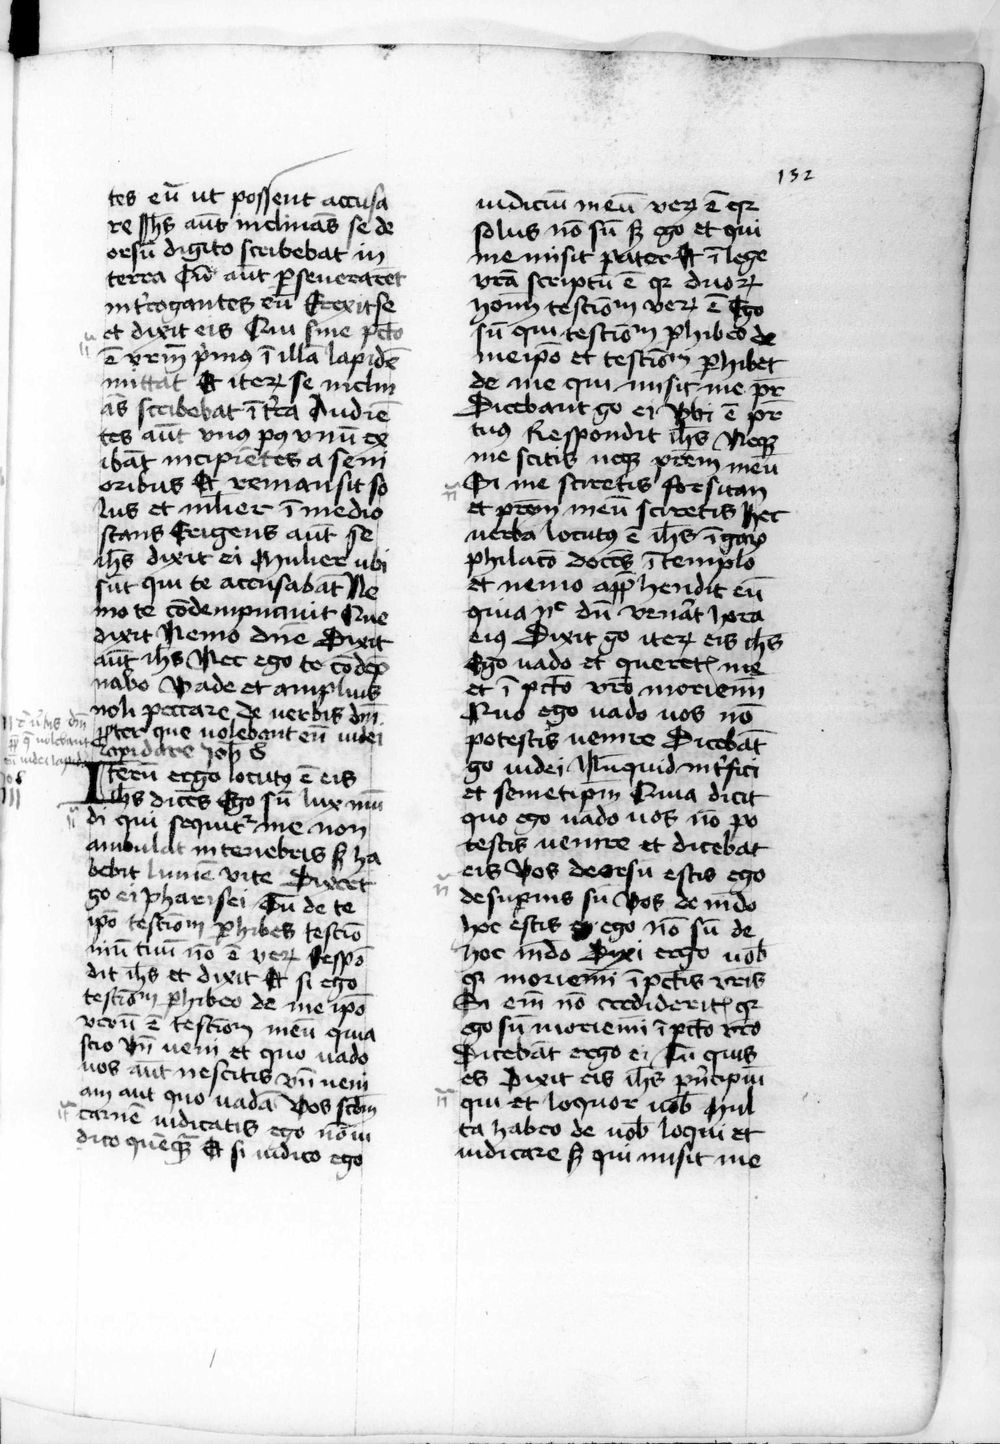 132
tes eū ut possent accusa
re Jhs aūt inclinās se de
orsū digito scribebat in
terra Cū aūt perseverarēt
introgantes eū Erexit se
et dixit eis Qui sine pcto
ē vrm primus ī illā lapidē
mittat Et iterum se inclin
ās scribebat ī tra Audiē
tes aūt unus post unū ex
ibāt incipiētes a seni
oribus Et remansit so
lus et mlier ī medio
stans Erigens aūt se
ihs dixit ei Mulier ubi
sūt qui te accusabāt Ne
mo te cōdempnavit Que
dixit Nemo dne Dixit
aūt ihs Nec ego te cōdēp
nabo Vade et amplius
noli peccare de verbis dni
propter que volebant eū iudei
lapidare Joh 8
Iterū ergo locutus ē eis
ihs dicēs Ego sū lux mū
di qui sequitur me non
ambulat in tenebris sed ha
bebit lumē vite Dixert
go ei pharisei Tu de te
ipo testiom perhibes testio
niū tuū nō ē verum Respō
dit ihs et dixit Et si ego
testiom perhibeo de me ipo
verū ē testiom meū quia
scio vn veni et quo vado
vos aūt nescitis vn veni
am aut quo vadā Vos scdm
carnē iudicatis ego nō iu
dico quēquam Et si iudico ego
iudiciū meū verum ē quia
solus nō sū sed ego et qui
me misit pater Et ī lege
vrā scriptū ē quia duorum
hoīm testiom verum ē Ego
sū qui testiom perhibeo de
meipo et testiom perhibet
de me qui misit me pr
Dicebant go ei Ubi ē pr
tuus Respondit ihs Neque
me scitis neque prem meū
Si me sciretis forsitan
et prem meū sciretis Hec
verba locutus ē ihs ī gazo
philacō docēs ī templo
et nemo apprehendit eū
quia nc dū venāt hora
eius Dixit go iterum eis ihs
Ego vado et queretis me
et ī pcto vro moriemi
Quo ego vado vos nō
potestis venire Dicebāt
go iudei Nūquid intrfici
et semetipm Quia dicit
quo ego vado vos nō po
testis venire et dicebat
eis Vos deorsū estis ego
desupernis sū Vos de mdo
hoc estis ego nō sū de
hoc mdo Dixi ergo vob
quia moriemi ī pctis vris
Si em nō credideritis quia
ego sū moriemi ī pcto vro
Dicebāt ergo ei Tu quis
es Dixit eis ihs pncipiū
qui et loquor vob Mul
ta habeo de vob loqui et
iudicare sed qui misit me